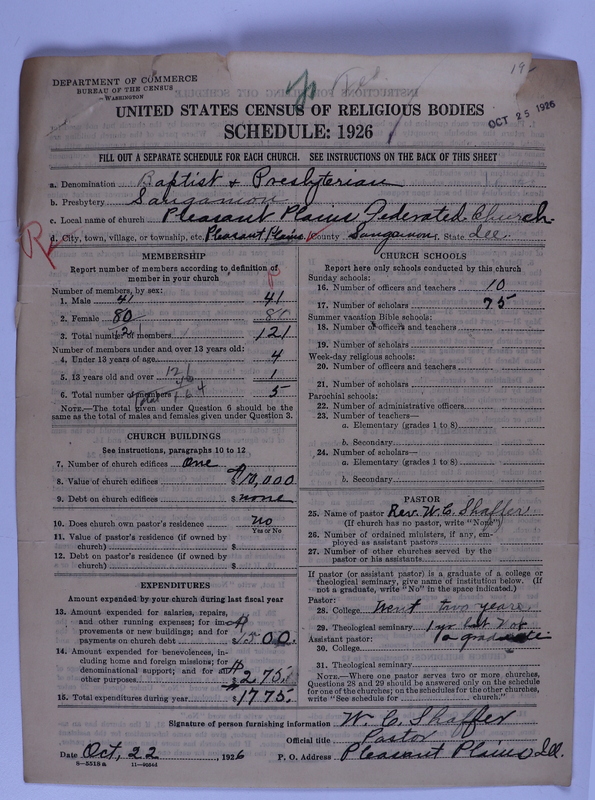 19-
DEPARTMENT OF COMMERCE
BUREAU OF THE CENSUS
WASHINGTON
OCT 25 1926
UNITED STATES CENSUS OF RELIGIOUS BODIES
SCHEDULE: 1926
FILL OUT A SEPARATE SCHEDULE FOR EACH CHURCH. SEE INSTRUCTIONS ON THE BACK OF THIS SHEET
a. Denomination Baptist & Presbyterian
b. Presbytery Sangamon
c. Local name of church Pleasant Plains Federated Church.
d. City, town, village, or township, etc. Pleasant Plains County Sangamon, State Ill.
R
MEMBERSHIP
Report number of members according to definition of
member in your church
Number of members by sex:
1. Male 41 41
2. Female 80 80
3. Total number of members 121 121
Number of members under and over 13 years old:
4. Under 13 years of age 4
5. 13 years old and over 121 1
6. Total number of members Total 164 5
NOTE.—The total given under Question 6 should be
the same as the total of males and females given under Question 3.
CHURCH BUILDINGS
See instructions, paragraphs 10 to 12
7. Number of church edifices one
8. Value of church edifices $10,000
9. Debt on church edifices $ none
10. Does church own pastor's residence no
Yes or No
11. Value of pastor's residence (if owned by
church) $
12. Debt on pastor's residence (if owned by
church) $
EXPENDITURES
Amount expended by your church during last fiscal year
13. Amount expended for salaries, repairs,
and other running expenses; for im-
provements or new buildings; and for
payments on church debt $1500.
14. Amount expended for benevolences, in-
cluding home and foreign missions; for
denominational support; and for all
other purposes $275.
15. Total expenditures during year $1775.
CHURCH SCHOOLS
Report here only schools conducted by this church
Sunday schools:
16. Number of officers and teachers 10
17. Number of scholars 75
Summer vacation Bible schools:
18. Number of officers and teachers
19. Number of scholars
Week-day religious schools:
20. Number of officers and teachers
21. Number of scholars
Parochial schools:
22. Number of administrative officers
23. Number of teachers—
a. Elementary (grades 1 to 8)
b. Secondary
24. Number of scholars—
a. Elementary (grades 1 to 8)
b. Secondary
PASTOR
25. Name of pastor Rev. W. C. Shaffer
(If church has no pastor, write "None")
26. Number of ordained ministers, if any, em-
ployed as assistant pastors
27. Number of other churches served by the
pastor or his assistants
If pastor (or assistant pastor) is a graduate of a college or
theological seminary, give name of institution below. (If
not a graduate, write "No" in the space indicated.)
Pastor:
28. College Went two years
29. Theological seminary 1 yr but not
Assistant pastor: a graduate
30. College
31. Theological seminary
NOTE.—Where one pastor serves two or more churches,
Questions 28 and 29 should be answered only on the schedule
for one of the churches; on the schedules for the other churches,
write "See schedule for church."
Signature of person furnishing information W. C. Shaffer
Official title Pastor
Date Oct, 22, 1926 P. O. Address Pleasant Plains Ill.
8—5518 a